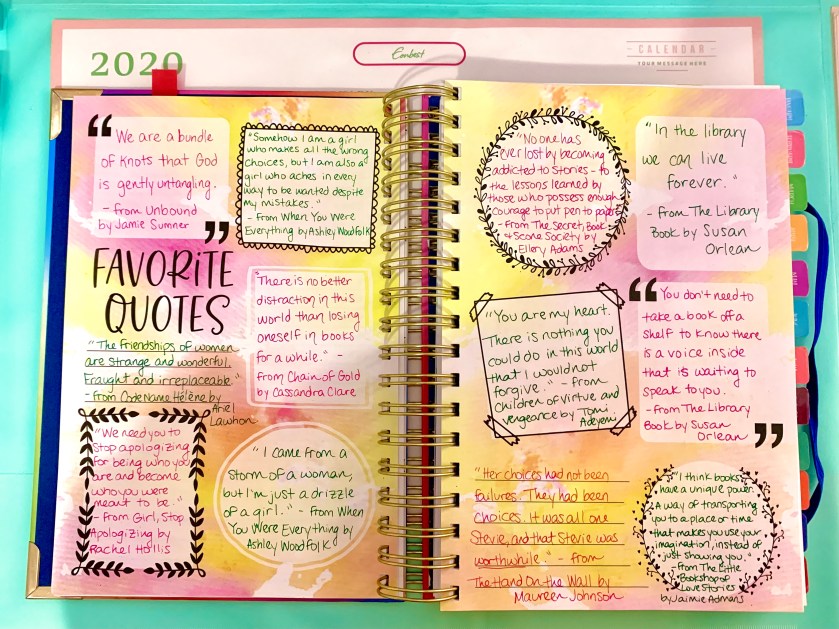 2020
Conbest
CALENDAR
YOUR MESSAGE HERE
"We are a bundle
of knots that God
is gently untangling.
- From Unbound
by Jamie Sumner
"
"Somehow I am a girl
who makes all the wrong
choices, but I am also a
girl who aches in every
way to be wanted despite
my mistakes."
- From When You Were
Everything by Ashley Woodfolk
FAVORITE
QUOTES
"There is no better
distraction in this
world than losing
oneself in books
for a while." -
from Chain of Gold
by Cassandra Clare
"The friendships of women
are strange and wonderful.
Fraught and irreplaceable."
- From Code Name Hélène by
Ariel
Lawhon
"We need you to
stop apologizing
for being who you
are and become
who you were
meant to be."
- From Girl, Stop
Apologizing by
Rachel Hollis
"I came from a
storm of a woman,
but I'm just a drizzle
of a girl." - From When
You Were Everything by
Ashley Woodfolk
"No one has
ever lost by becoming
addicted to stories - to
the lessons learned by
those who possess enough
courage to put pen to paper."
- From The Secret, Book
& Scone Society by
Ellery Adams
"In the library
we can live
forever."
- From The Library
Book by Susan
Orlean
"You are my heart.
There is nothing you
could do in this world
that I would not
forgive." - From
Children of Virtue and
Vengeance by Tomi
Adeyemi
"You don't need to
take a book off a
shelf to know there
is a voice inside
that is waiting to
speak to you.
- From The Library
Book by Susan
Orlean
"
"Her choices had not been
failures. They had been
choices. It was all one
Stevie, and that Stevie was
worthwhile." - from
The Hand On the Wall by
Maureen Johnson
"I think books
have a unique power.
A way of transporting
you to a place or time
that makes you use your
imagination, instead of
just showing you.
- From The Little
Bookshop of
Love Stories
by Jaimie Admans